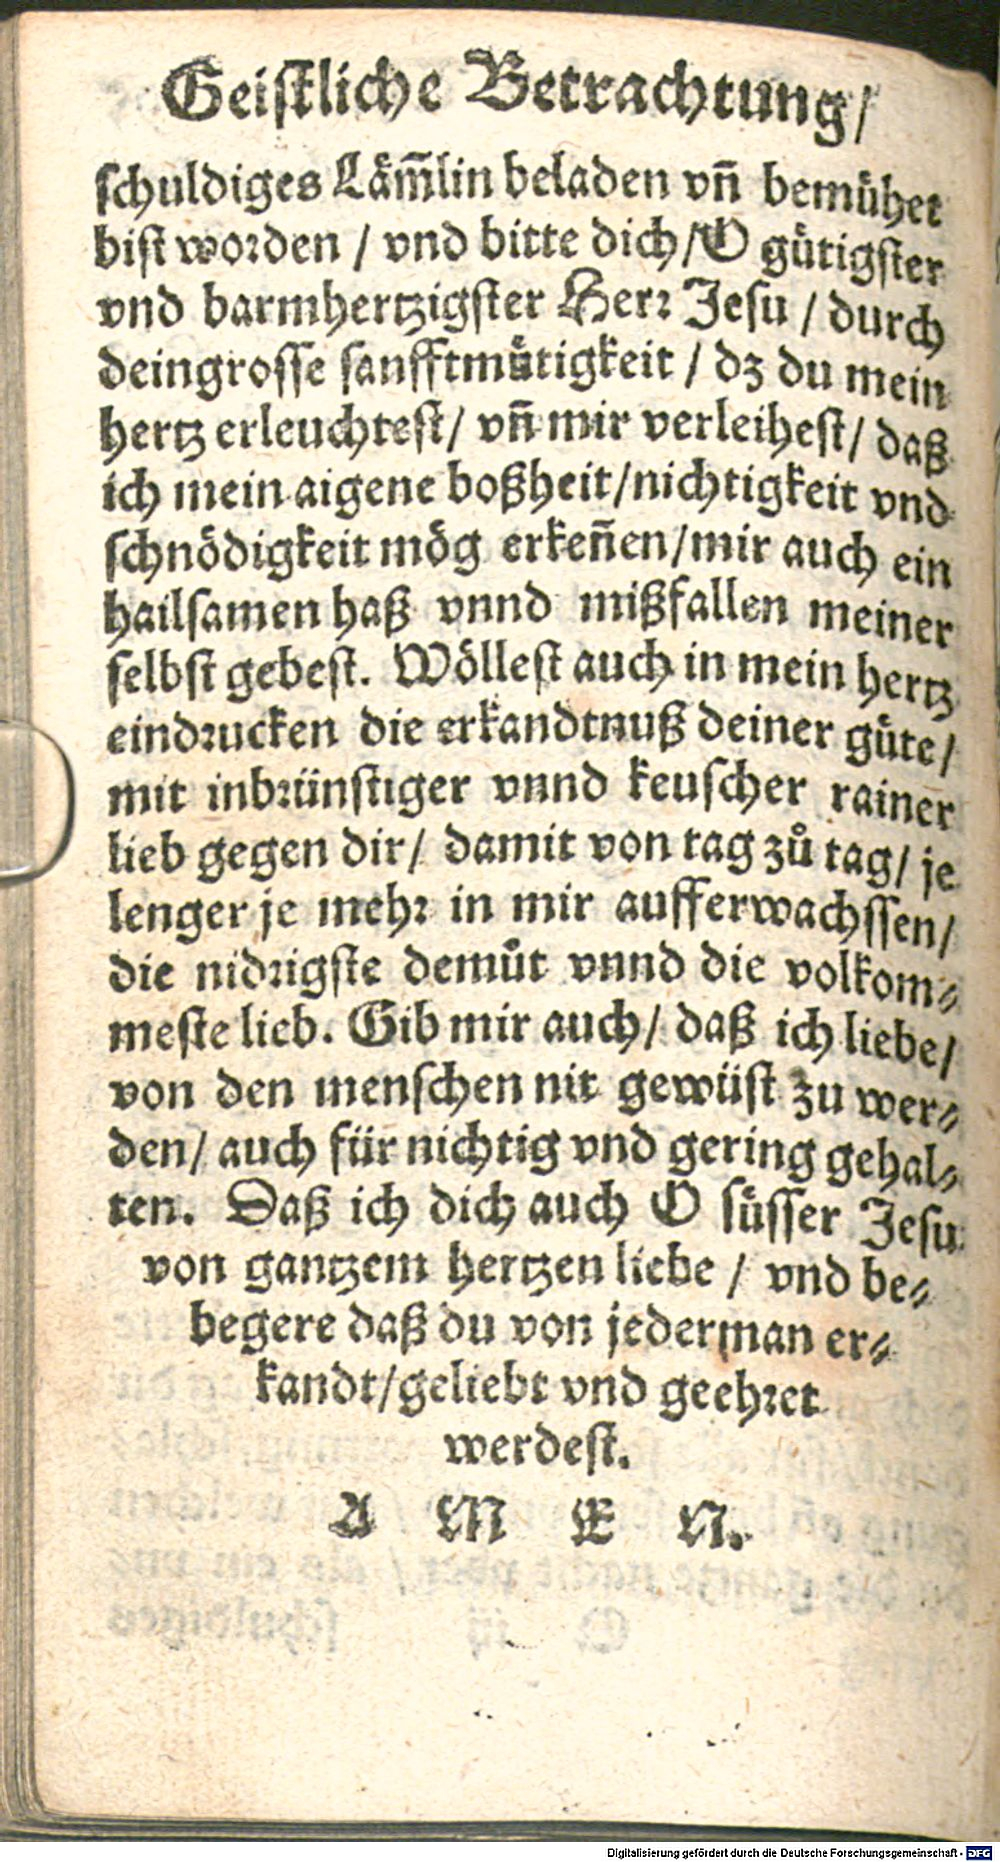 Geistliche Betrachtung/
schuldiges Läm̄lin beladen vn̄ bemühet
bist worden / vnd bitte dich/O gütigster
vnd barmhertzigster Herr Jesu / durch
deingrosse sanfftmütigkeit / dz du mein
hertz erleuchtest/ vn̄ mir verleihest/ daß
ich mein aigene boßheit/nichtigkeit vnd
schnödigkeit mög erken̄en/mir auch ein
hailsamen haß vnnd mißfallen meiner
selbst gebest. Wöllest auch in mein hertz
eindrucken die erkandtnuß deiner güte/
mit inbrünstiger vnnd keuscher rainer
lieb gegen dir/ damit von tag zů tag/ je
lenger je mehr in mir aufferwachssen/
die nidrigste demůt vnnd die volkom⸗
meste lieb. Gib mir auch/ daß ich liebe/
von den menschen nit gewüst zu wer⸗
den/ auch für nichtig vnd gering gehal⸗
ten. Daß ich dich auch O süsser Jesu
von gantzem hertzen liebe / vnd be⸗
begere daß du von jederman er⸗
kandt/geliebt vnd geehret
werdest.
A M E N.
Digitalisierung gefördert durch die Deutsche Forschungsgemeinschaft - DFG